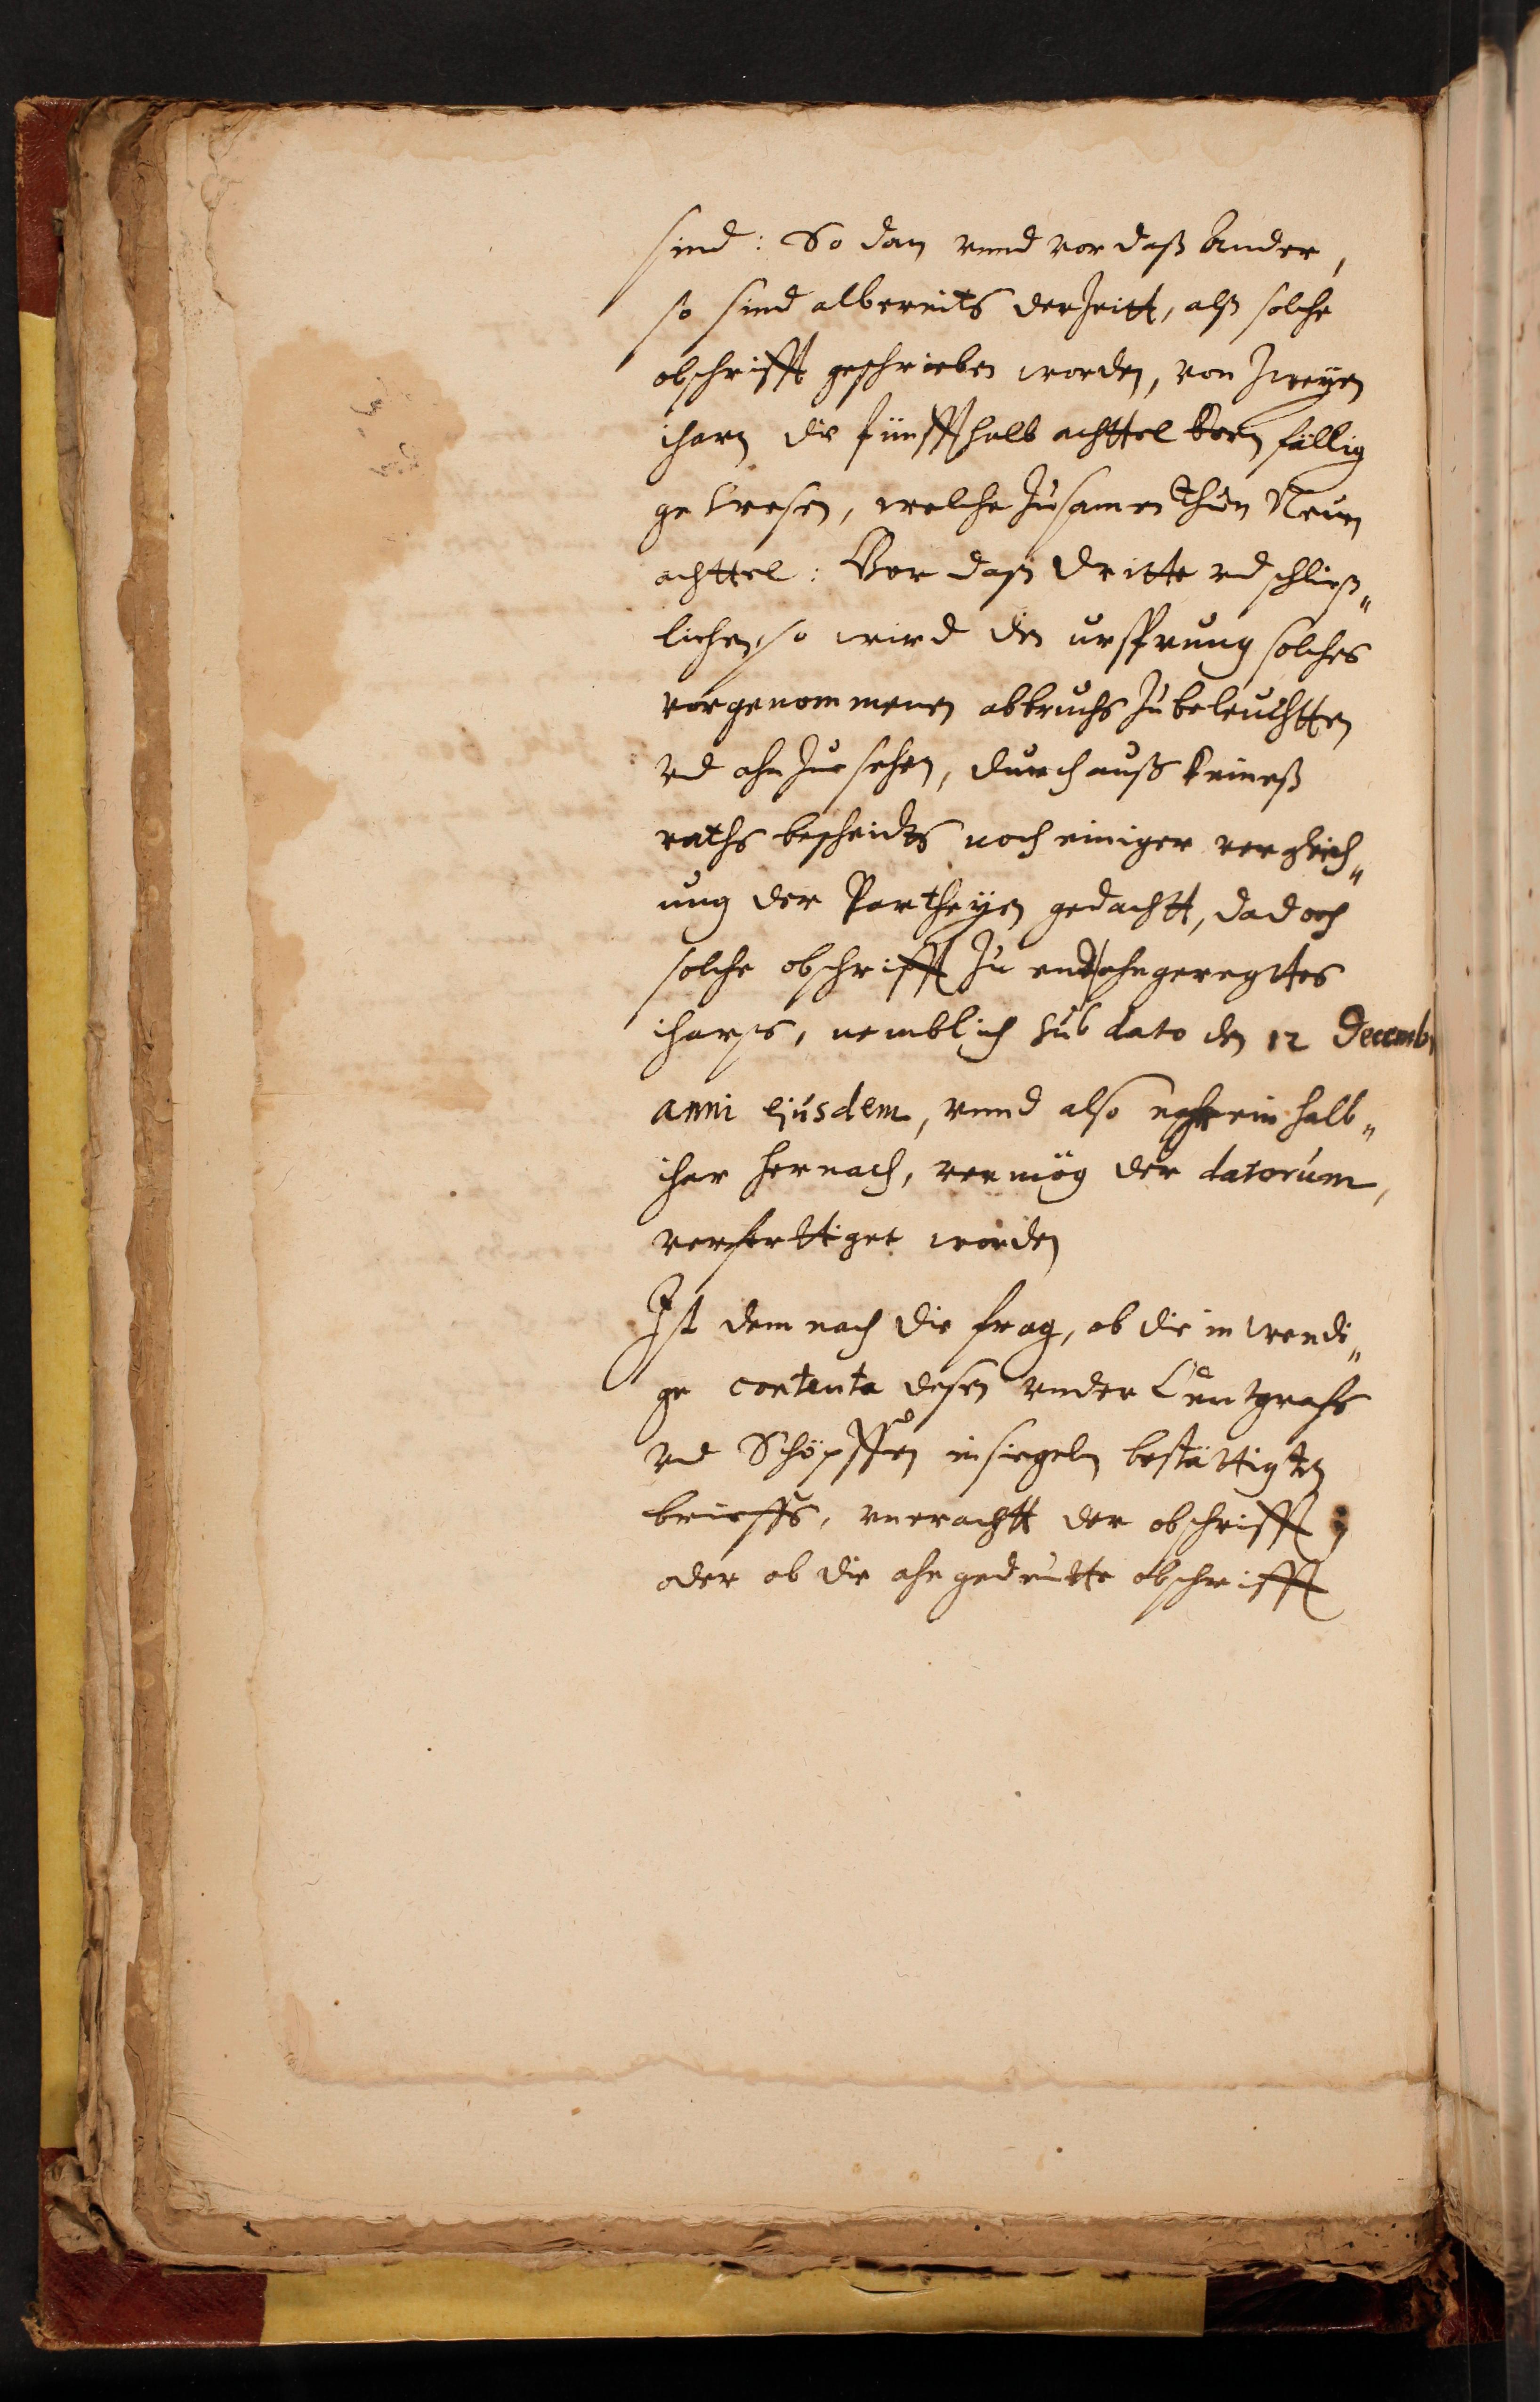 sind: So dan vnnd vor daß Ander,
so sind albereits der Zeitt, alß solche
obschrifft geschrieben worden, von Zweyen
iharn die fünffhalb achttel korn fällig
gewesen, welche Zusamen thun Neun
achttel: Vor daß dritte vnd schließ„
lichen, so wird der ursprung solches
vorgenommenen abbruchs Zubeleuchtten
vnd ahn Zusehen, durchauß keineß
raths bescheidts noch einiger vergleich„
ung der Partheyen gedachtt, da doch
solche obschrifft Zu end ahngeregttes
ihars, nemblich sub dato den 12 Decemb
anni ejusdem, vnnd also ein halb„
ihar hernach, vermög der datorum,
verferttiget worden
Ist demnach die frag, ob die inwendi„
ge contenta deßen vnder Centgrafs
vnd Schöpffen insiegeln bestättigtn
brieffs, vnerachtt der obschrifft;
oder ob die ahngedeutte obschrifft